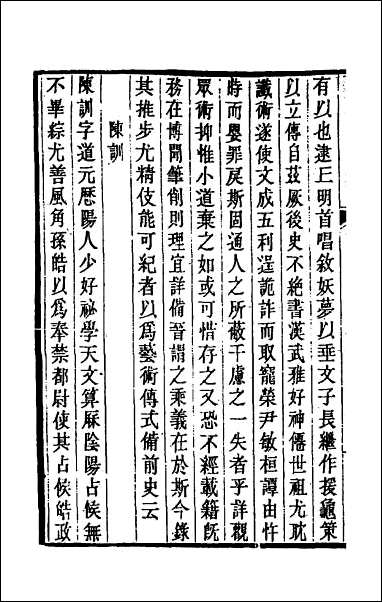 有以也逮丘明首唱敘妖夢以垂文子長繼作援龜策
以立傳自茲厥後史不絕書漢武雅好神僊世祖尤耽
讖術遂使文成五利逞詭詐而取寵榮尹敏桓譚由忤
時而嬰罪戾斯固通人之所蔽千慮之一失者乎詳觀
眾術抑惟小道棄之如或可惜存之又恐不經載籍既
務在博聞筆削則理宜詳備晉謂之乘義在於斯今錄
其推步尤精伎能可紀者以爲藝術傳式備前史云
陳訓
陳訓字道元歷陽人少好祕學天文算厤陰陽占候無
不畢綜尤善風角孫皓以爲奉禁都尉使其占候皓政